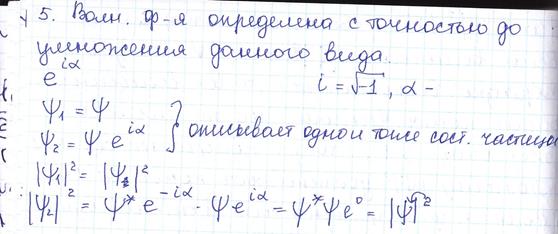 5. Волн. ф-я определена с точностью до
умножения данного вида.
e^{iα} i = √-1, α -
Ψ₁ = Ψ
Ψ₂ = Ψ e^{iα} } описывает одно и тоже сост. частицы
|Ψ₁|² = |Ψ₂|²
|Ψ₂|² = Ψ* e^{-iα} · Ψ e^{iα} = Ψ*Ψ e⁰ = |Ψ|²